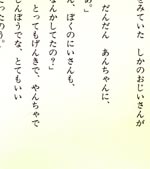 をみていた しかのおじいさんが
だんだん あんちゃんに、
あ。」
ん、ぼくのにいさんも、
なんかしてたの？」
とってもげんきで、やんちゃで
しんぼうでな、とてもいい
たったのう。